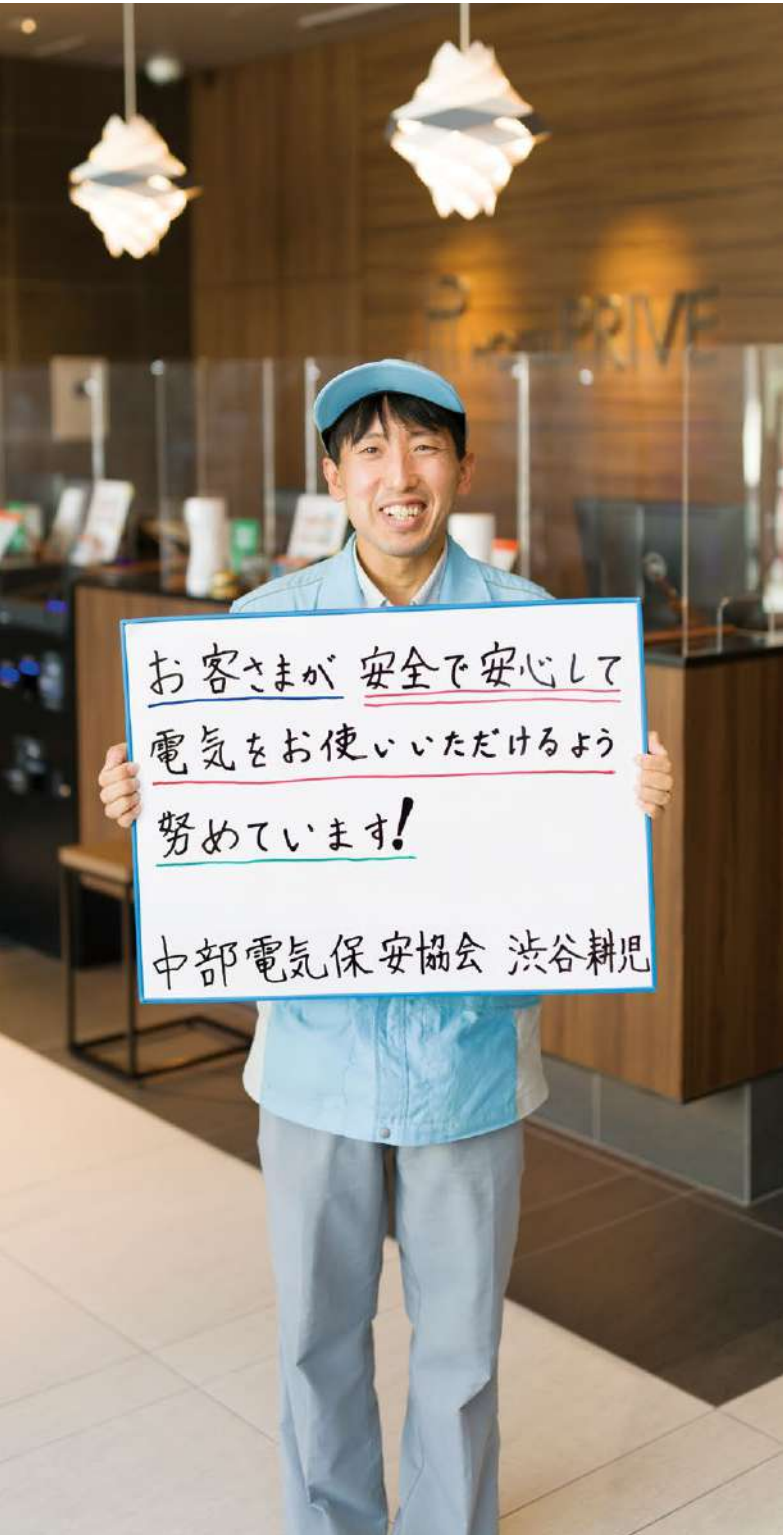 PRIVE
お客さまが 安全で安心して
電気をお使いいただけるよう
努めています!
中部電気保安協会 渋谷耕児